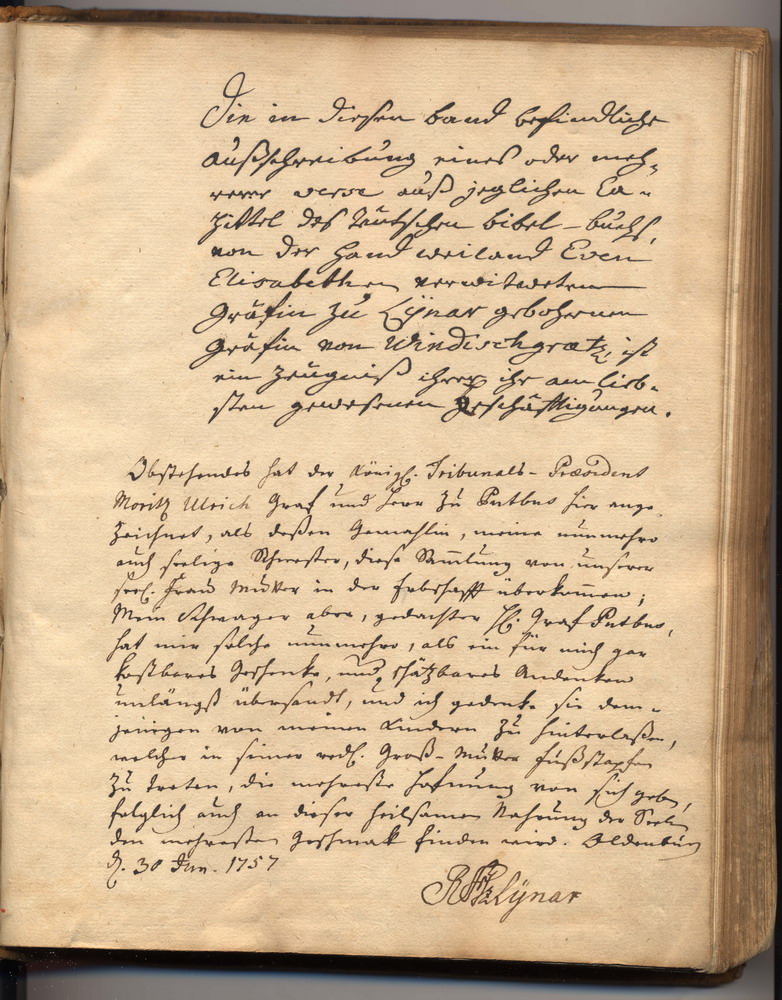 Die in diesem band befindliche
außschreibung eines oder meh-
rerer verse auß jeglichen Ca-
pittel des Teütschen bibel-buchs,
von der Hand weiland Even
Elisabethen verwittweten
Gräfin zu Lÿnar gebohrnen
Gräfin von Windischgrätz, ist
ein Zeugniß ihrer ihr am lieb-
sten gewesenen Geschäftigungen.
Obstehendes hat der Königl. Tribunals-Præsident
Moritz Ulrich Graf und Herr zu Putbus hier ange
zeichnet, als deßen Gemahlin, meine nunmehro
auch seelige Schwester, diese Samlung von unserer
seel. Frau Mutter in der Erbschafft überkommen;
Mein Schwager aber, gedachter H. Graf Putbus,
hat mir solche nunmehro, als ein für mich gar
kostbares Geschenke, und schätzbares Andenken
unlängst übersandt, und ich gedenke sie dem-
jenigen von meinen Kindern zu hinterlaßen,
welcher in seiner Groß-Mutter Fußstapfen
zu treten, die mehreste Hofnung von sich geben,
folglich auch an dieser heilsamen Nahrung der Seelen
den mehresten Geschmak finden wird. Oldenburg
d. 30 Jun. 1757
Lÿnar